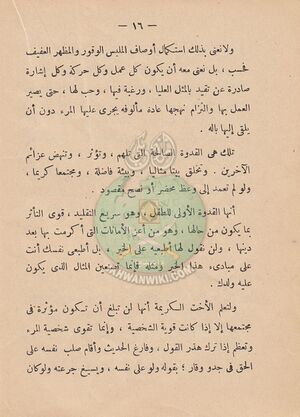 — ١٦ —
ولا نعنى بذلك استكمال أوصاف الملبس الوقور والمظهر العفيف
فحسب ، بل نعنى معه أن يكون كل عمل وكل حركة وكل إشارة
صادرة عن تقيد بالمثل العليا ، ورغبة فيها ، وحب لها ، حتى يصير
العمل بها والتزام نهجها عادة مألوفه يجرى عليها المرء دون أن
يلقى إليها باله .
تلك هى القدوة الصالحة التى تلهم ، وتؤثر ، وتنهض عزائم
الآخرين . وتخلق بيتا مثاليا ، وبيئة فاضلة ، ومجتمعا كريما ،
ولو لم تعمد إلى وعظ محضر أو نصح مقصود .
أنها القدوة الأولى للطفل ، وهو سريع التقليد ، قوى التأثر
بما يكون من حالها ، وهو من أعز الأمانات التى أكرمت بها بعد
دينها ، ولن نقول لها أطبعيه على الخير ، بل أطبعى نفسك أنت
على مبادىء هذا الخير ومثله فإنما تصنعين المثال الذى يكون
عليه ولدك .
ولتعلم الأخت الكريمة أنها لن تبلغ أن تكون مؤثرة فى
مجتمعها إلا إذا كانت قوية الشخصية ، وإنما تقوى شخصية المرء
وتعظم إذا ترك هذر القول ، وفارغ الحديث وأقام صلب نفسه على
الحق فى جدو وقار ؛ يقوله ولو على نفسه ، ويسيغ جرعته ولو كان
IKHWANWIKI.COM